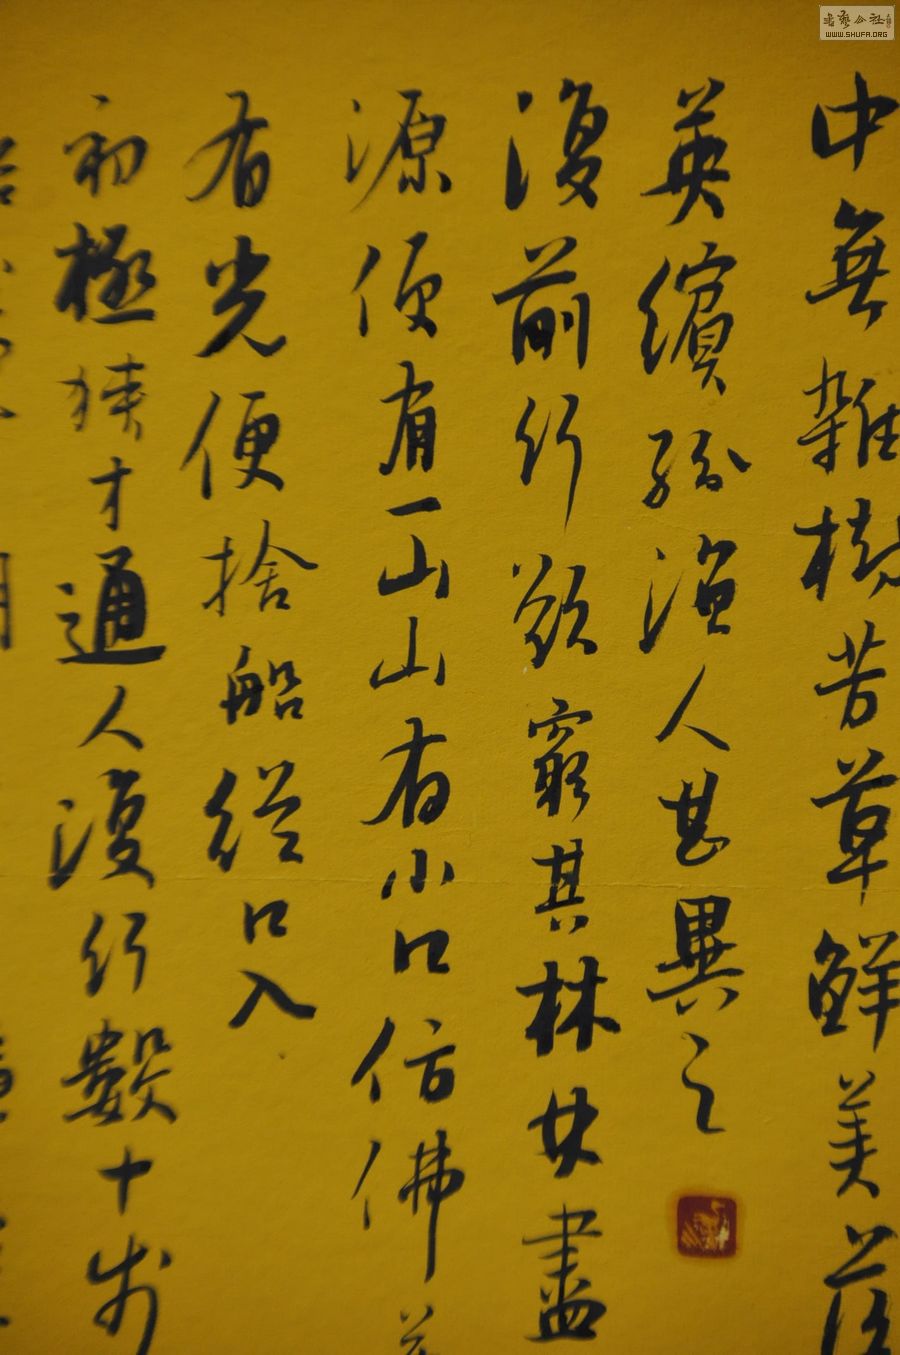 中無雜樹芳草鮮美落
英繽紛漁人甚異之
復前行欲窮其林林盡
源便有一山山有小口仿佛若
有光便捨船從口入
初極狹才通人復行數十步
书艺公社
WWW.SHUFA.ORG